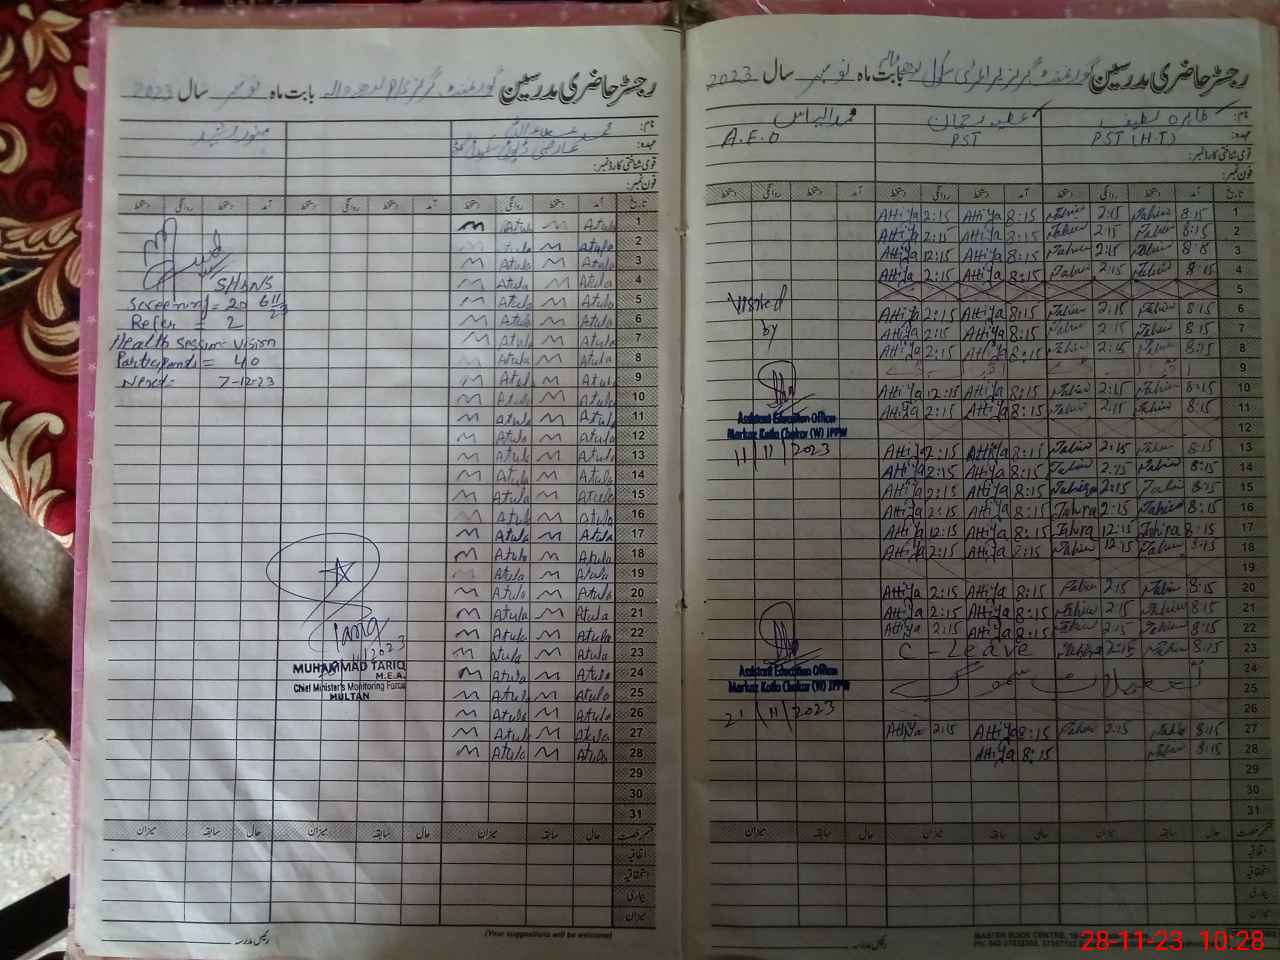 رجسٹر حاضری مدرسین گورنمنٹ گرلز بابت ماہ نومبر سال 2023
نام:
عہدہ:
قومی شناختی کارڈ نمبر:
فون نمبر:
تاریخ آمد دستخط روانگی دستخط آمد دستخط روانگی دستخط آمد دستخط روانگی دستخط
1 Atula Atula
2 Atula Atula
3 Atula Atula
4 Atula Atula
5 Atula Atula
6 Atula Atula
7 Atula Atula
8 Atula Atula
9 Atula Atula
10 Atula Atula
11 Atula Atula
12 Atula Atula
13 Atula Atula
14 Atula Atula
15 Atula Atula
16 Atula Atula
17 Atula Atula
18 Atula Atula
19 Atula Atula
20 Atula Atula
21 Atula Atula
22 Atula Atula
23 Atula Atula
24 Atula Atula
25 Atula Atula
26 Atula Atula
27 Atula Atula
28 Atula Atula
29
30
31
SHANS
Screening = 20 6/11/23
Refer = 2
Health session - vision
Participants = 40
Next - 7-12-23
Tariq
MUHAMMAD TARIQ
M.E.A.
Chief Minister's Monitoring Force
MULTAN
قسم رخصت حال سابقہ میزان حال سابقہ میزان حال سابقہ میزان
اتفاقیہ
استحقاقیہ
بیماری
میزان
(Your suggestions will be welcomed)
رئیس مدرسہ
رجسٹر حاضری مدرسین گورنمنٹ گرلز پرائمری سکول بابت ماہ نومبر سال 2023
نام: طاہرہ لطیف عطیہ رحمان محمد الیاس
عہدہ: PST (H.T) PST A.E.O
قومی شناختی کارڈ نمبر:
فون نمبر:
تاریخ آمد دستخط روانگی دستخط آمد دستخط روانگی دستخط آمد دستخط روانگی دستخط
1 8:15 Tahira 2:15 Tahira 8:15 Attiya 2:15 Attiya
2 8:15 Tahira 2:15 Tahira 8:15 Attiya 2:15 Attiya
3 8:15 Tahira 2:15 Tahira 8:15 Attiya 2:15 Attiya
4 8:15 Tahira 2:15 Tahira 8:15 Attiya 2:15 Attiya
5
6 8:15 Tahira 2:15 Tahira 8:15 Attiya 2:15 Attiya
7 8:15 Tahira 2:15 Tahira 8:15 Attiya 2:15 Attiya
8 8:15 Tahira 2:15 Tahira 8:15 Attiya 2:15 Attiya
9
10 8:15 Tahira 2:15 Tahira 8:15 Attiya 12:15 Attiya
11 8:15 Tahira 2:15 Tahira 8:15 Attiya 2:15 Attiya
12
13 8:15 Tahira 2:15 Tahira 8:15 Attiya 2:15 Attiya
14 8:15 Tahira 2:15 Tahira 8:15 Attiya 2:15 Attiya
15 8:15 Tahira 2:15 Tahira 8:15 Attiya 2:15 Attiya
16 8:15 Tahira 2:15 Tahira 8:15 Attiya 2:15 Attiya
17 8:15 Tahira 12:15 Tahira 8:15 Attiya 12:15 Attiya
18 8:15 Tahira 12:15 Tahira 8:15 Attiya 2:15 Attiya
19
20 8:15 Tahira 2:15 Tahira 8:15 Attiya 2:15 Attiya
21 8:15 Tahira 2:15 Tahira 8:15 Attiya 2:15 Attiya
22 8:15 Tahira 2:15 Tahira 8:15 Attiya 2:15 Attiya
23 8:15 Tahira 2:15 Tahira C - Leave
24
25
26
27 8:15 Tahira 2:15 Tahira 8:15 Attiya 2:15 Attiya
28 8:15 Tahira 8:15 Attiya
29
30
31
Visited
by
Assistant Education Officer
Markaz Kotla Chakar (W) JPPW
11/11/2023
Assistant Education Officer
Markaz Kotla Chakar (W) JPPW
21/11/2023
قسم رخصت حال سابقہ میزان حال سابقہ میزان حال سابقہ میزان
اتفاقیہ
استحقاقیہ
بیماری
میزان
رئیس مدرسہ
MASTER BOOK CENTRE,
28-11-23 10:28